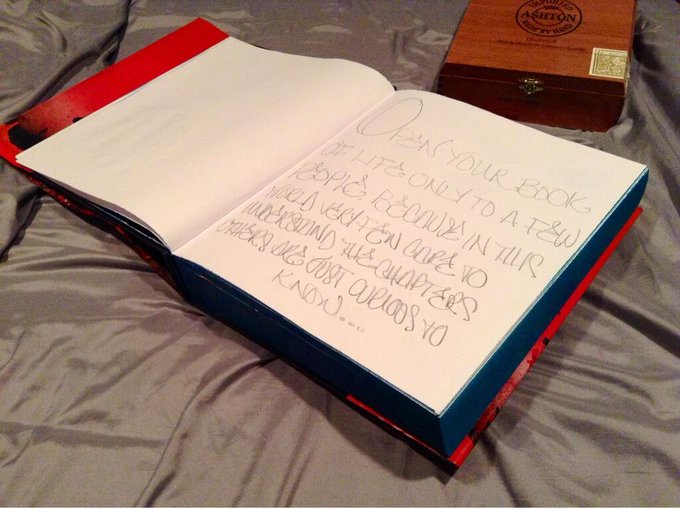 IMPORTED
ASHTON
MADE BY HAND
OPEN YOUR BOOK
OF LIFE ONLY TO A FEW
PEOPLE. BECAUSE IN THIS
WORLD VERY FEW CARE TO
UNDERSTAND THE CHAPTERS
OTHERS ARE JUST CURIOUS TO
KNOW...